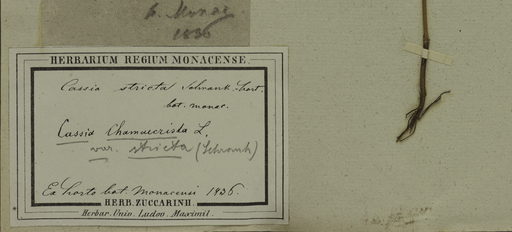 h. Monac.
1836
HERBARIUM REGIUM MONACENSE.
Cassia stricta Schrank hort.
bot. monac.
Cassia Chamaecrista L.
var. stricta (Schrank)
Ex horto bot. Monacensi 1836.
HERB. ZUCCARINII.
Herbar. Univ. Ludov. Maximil.